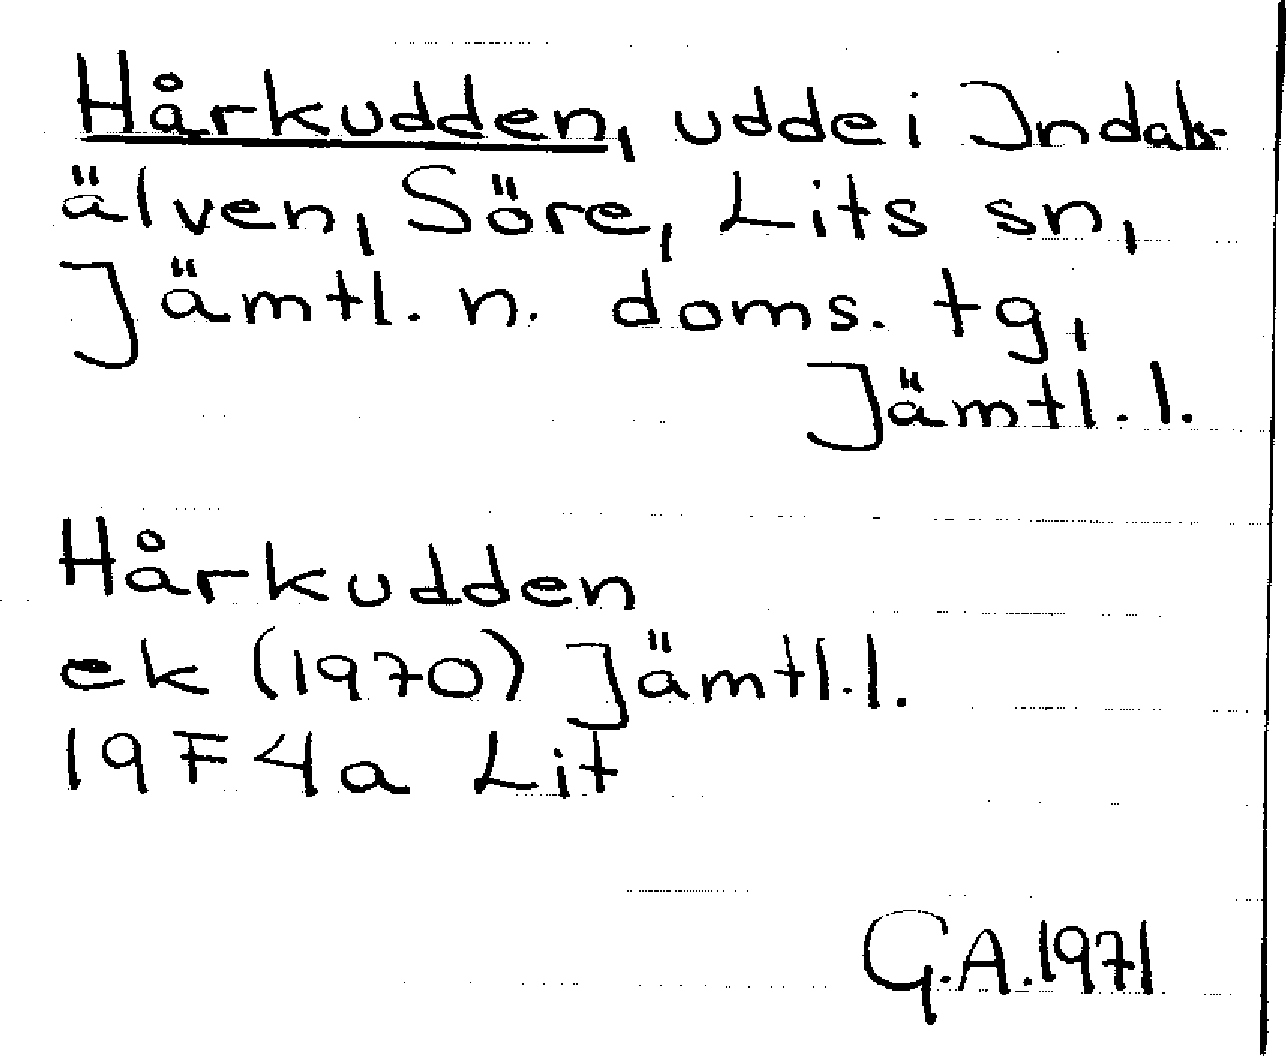 Hårkudden, udde i Indals-
älven, Söre, Lits sn,
Jämtl. n. doms. tg,
Jämtl. l.
Hårkudden
ek (1970) Jämtl. l.
19 F 4a Lit
G.A. 1971